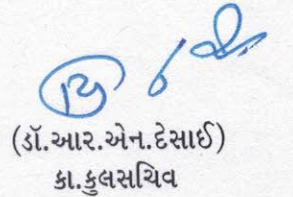 (ડૉ.આર.એન.દેસાઈ)
કા.કુલસચિવ